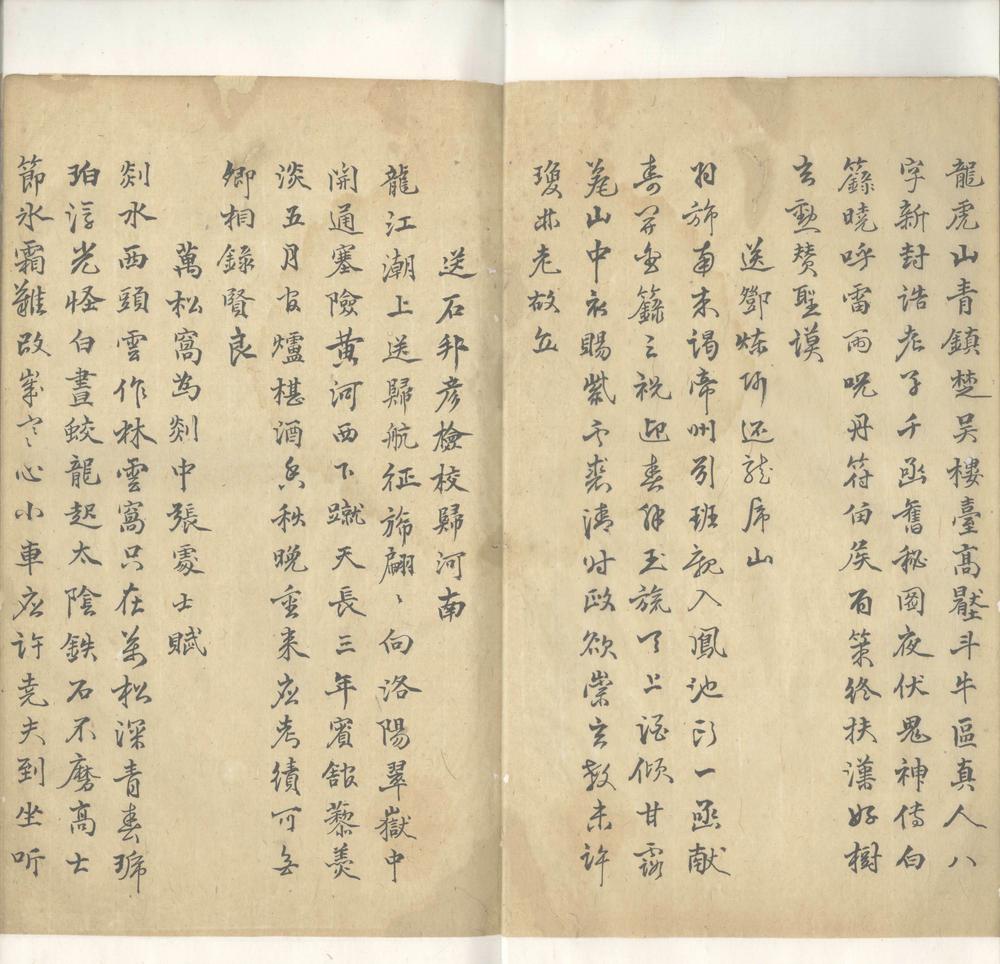 龍虎山青鎮楚吳樓臺高壓斗牛區真人八
字新封誥老子千函舊秘圖夜伏鬼神傳白
籙曉呼雷雨呪丹符留侯百策終扶漢好樹
玄勲賛聖謨
送鄧煉師還龍虎山
羽旆南來謁帝州別班親入鳳池頭一函献
壽金籙三祝迎春玉旒天上酒傾甘露
山中衣賜紫雲裘清時政欲崇玄教未許
瓊林老故丘
送石邦彦檢校歸河南
龍江潮上送歸航征旆翩〻向洛陽翠嶽中
開通塞險黄河西下蹴天長三年賓館藜羮
淡五月官爐椹酒香秋晚重来應考績可無
卿相錄賢良
萬松窩為剡中張處士賦
剡水西頭雲作林雲窩只在萬松深青春琥
珀浮光怪白晝蛟龍起太陰鉄石不磨高士
節氷霜難改歲寒心小車應許堯夫到坐听